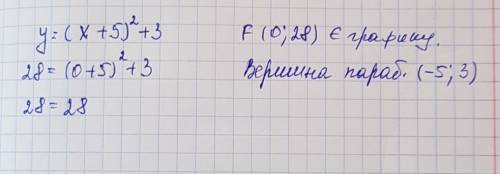 y = (x+5)²+3
28 = (0+5)²+3
28 = 28
F (0; 28) Є графику.
Вершина параб. (-5; 3)